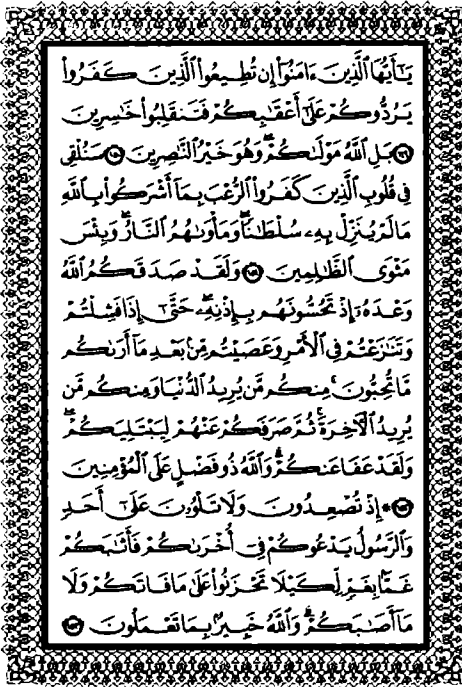 يَٰٓأَيُّهَا ٱلَّذِينَ ءَامَنُوٓا۟ إِن تُطِيعُوا۟ ٱلَّذِينَ كَفَرُوا۟
يَرُدُّوكُمْ عَلَىٰٓ أَعْقَٰبِكُمْ فَتَنقَلِبُوا۟ خَٰسِرِينَ
١٤٩ بَلِ ٱللَّهُ مَوْلَىٰكُمْ ۖ وَهُوَ خَيْرُ ٱلنَّٰصِرِينَ ١٥٠ سَنُلْقِى
فِى قُلُوبِ ٱلَّذِينَ كَفَرُوا۟ ٱلرُّعْبَ بِمَآ أَشْرَكُوا۟ بِٱللَّهِ
مَا لَمْ يُنَزِّلْ بِهِۦ سُلْطَٰنًا ۖ وَمَأْوَىٰهُمُ ٱلنَّارُ ۚ وَبِئْسَ
مَثْوَى ٱلظَّٰلِمِينَ ١٥١ وَلَقَدْ صَدَقَكُمُ ٱللَّهُ
وَعْدَهُۥٓ إِذْ تَحُسُّونَهُم بِإِذْنِهِۦ ۖ حَتَّىٰٓ إِذَا فَشِلْتُمْ
وَتَنَٰزَعْتُمْ فِى ٱلْأَمْرِ وَعَصَيْتُم مِّنۢ بَعْدِ مَآ أَرَىٰكُم
مَّا تُحِبُّونَ ۚ مِنكُم مَّن يُرِيدُ ٱلدُّنْيَا وَمِنكُم مَّن
يُرِيدُ ٱلْءَاخِرَةَ ۚ ثُمَّ صَرَفَكُمْ عَنْهُمْ لِيَبْتَلِيَكُمْ ۖ
وَلَقَدْ عَفَا عَنكُمْ ۗ وَٱللَّهُ ذُو فَضْلٍ عَلَى ٱلْمُؤْمِنِينَ
١٥٢ ۞ إِذْ تُصْعِدُونَ وَلَا تَلْوُۥنَ عَلَىٰٓ أَحَدٍ
وَٱلرَّسُولُ يَدْعُوكُمْ فِىٓ أُخْرَىٰكُمْ فَأَثَٰبَكُمْ
غَمًّۢا بِغَمٍّ لِّكَيْلَا تَحْزَنُوا۟ عَلَىٰ مَا فَاتَكُمْ وَلَا
مَآ أَصَٰبَكُمْ ۗ وَٱللَّهُ خَبِيرٌۢ بِمَا تَعْمَلُونَ ١٥٣